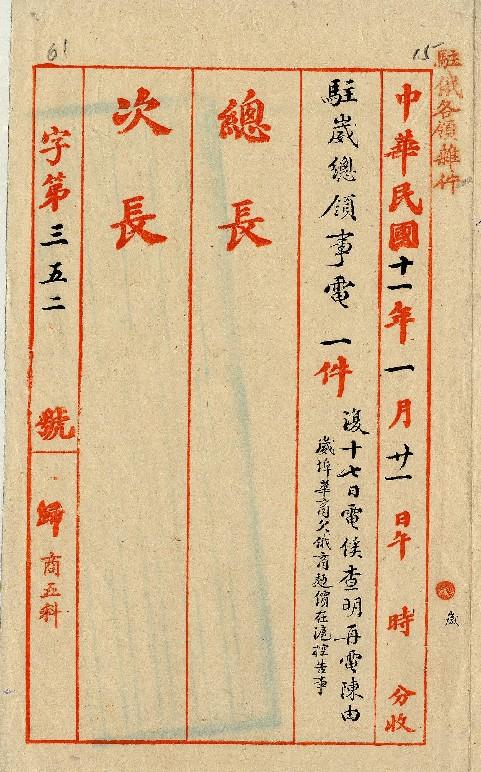 61
15
駐俄各領雜件
中華民國十一年一月廿一日午 時 分收
駐崴總領事電一件
復十七日電俟查明再電陳由
崴埠華商欠俄商麵價在滬控告事
總長
次長
字第三五二號
歸商五科
崴